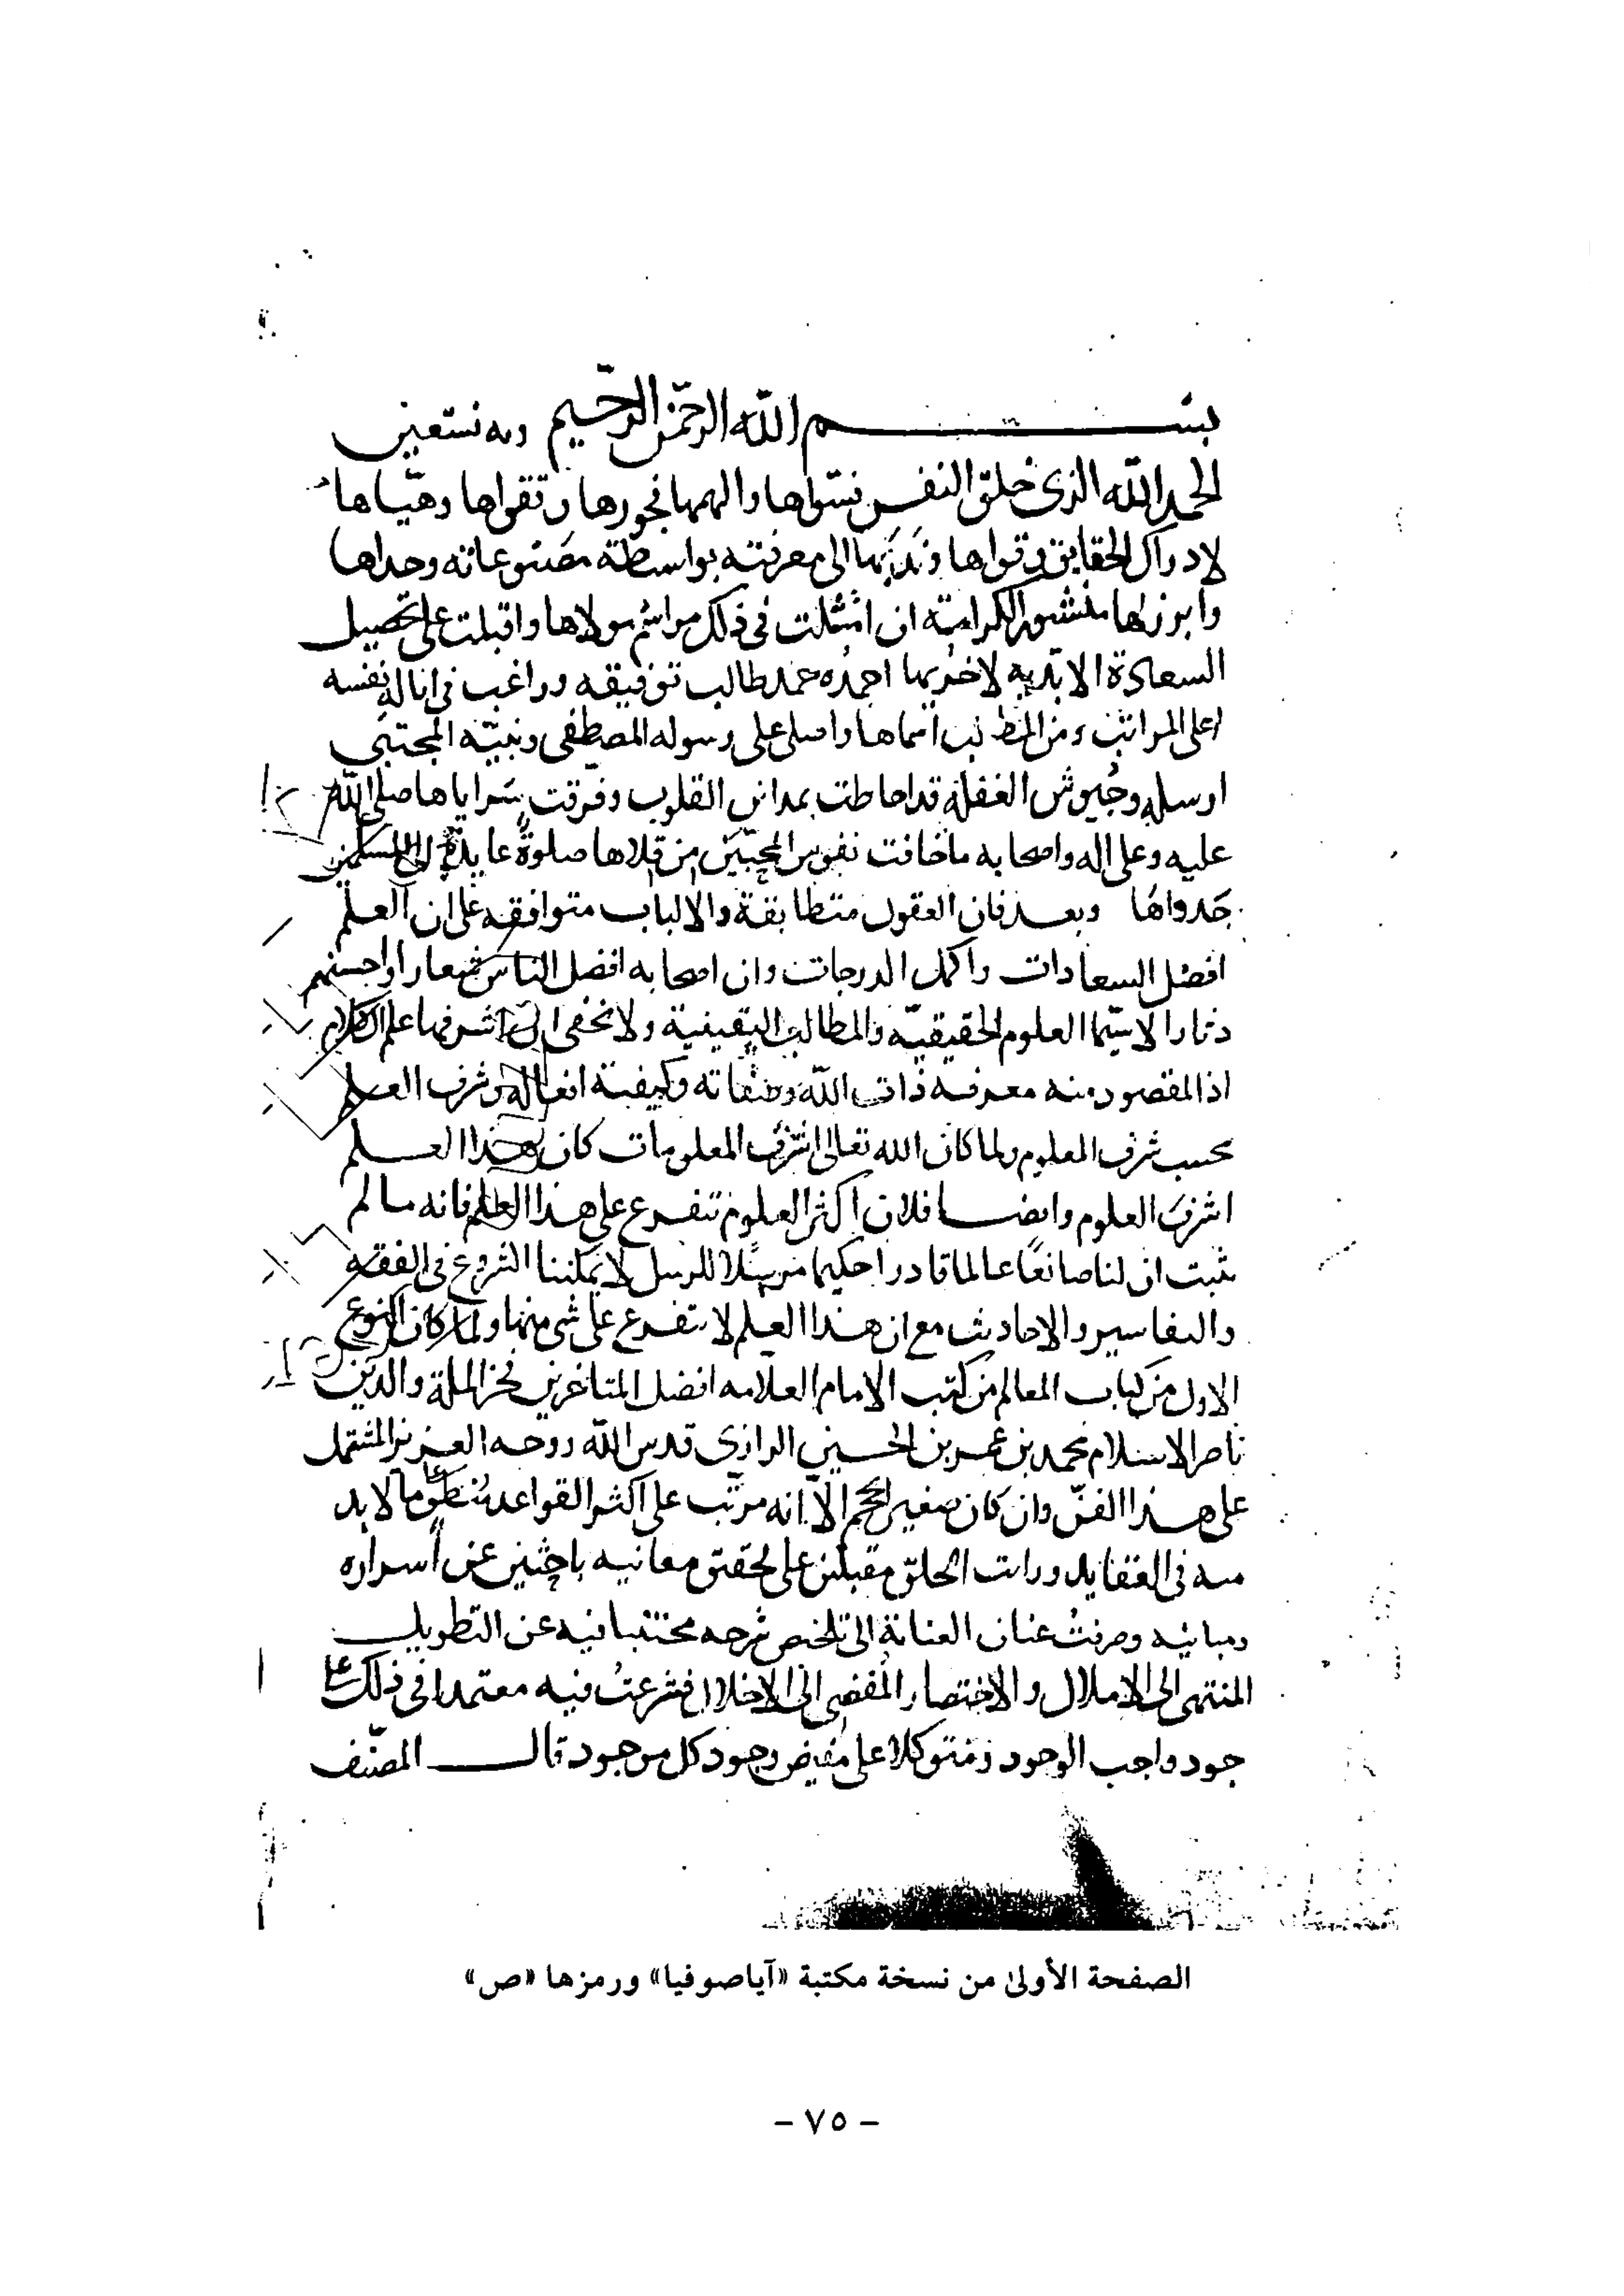 بسم الله الرحمن الرحيم وبه نستعين
الحمد لله الذى خلق النفس فسواها والهمها فجورها وتقواها وهيّاها
لادراك الحقايق وقواها وندبها الى معرفته بواسطة مصنوعاته وحداها
وابرز لها منشور الكرامة ان امتثلت فى ذلك مراسم مولاها واقبلت على تحصيل
السعادة الابدية لاخريها احمده حمد طالب توفيقه وراغب فى انالة نفسه
اعلى المراتب ومن المطالب اسماها واصلى على رسوله المصطفى ونبيّه المجتبى
ارسله وجيوش الغفلة قد احاطت بمداين القلوب وفرقت سراياها صلى الله
عليه وعلى اله واصحابه ما خافت نفوس المحبين من قلاها صلوة عايدة الى المسلمين
جدواها وبعد فان العقول متطابقة والالباب متوافقه على ان العلم
افضل السعادات واكمل الدرجات وان اصحابه افضل الناس شعارا واحسنهم
دثارا لا سيّما العلوم الحقيقيّه والمطالب اليقينية ولا تخفى ان اشرفها علم الكلام
اذ المقصود منه معرفه ذات الله وصفاته وكيفية افعاله وشرف العلم
بحسب شرف المعلوم ولما كان الله تعالى اشرف المعلومات كان هذا العلم
اشرف العلوم وايضا فلان اكثر العلوم تتفرع على هذا العلم فانه ما لم
يثبت ان لنا صانعًا عالما قادرا حكيما مرسلا للرسل لا يمكننا الشروع فى الفقه
والتفاسير والاحاديث مع ان هذا العلم لا يتفرع على شى منها ولما كان النوع
الاول من كتاب المعالم من كتب الامام العلامه افضل المتاخرين فخر الملة والدين
ناصر الاسلام محمد بن عمر بن الحسين الرازى قدس الله روحه العزيز المشتمل
على هذا الفنّ وان كان صغير الحجم الّا انه مرتّب على اكثر القواعد منطو على ما لا بد
منه فى العقايد ورايت الخلق مقبلين على تحقيق معانيه باحثين عن اسراره
ومبانيه وصرفت عنان العناية الى تلخيص شرحه مجتنبا فيه عن التطويل
المنتهى الى الاملال والاختصار المفضى الى الاخلال فشرعتُ فيه معتمدا فى ذلك على
جود واجب الوجود ومتوكلا على مفيض وجود كل موجود قال المصنّف
الصفحة الأولىٰ من نسخة مكتبة «آياصوفيا» ورمزها «ص»
- ٧٥ -